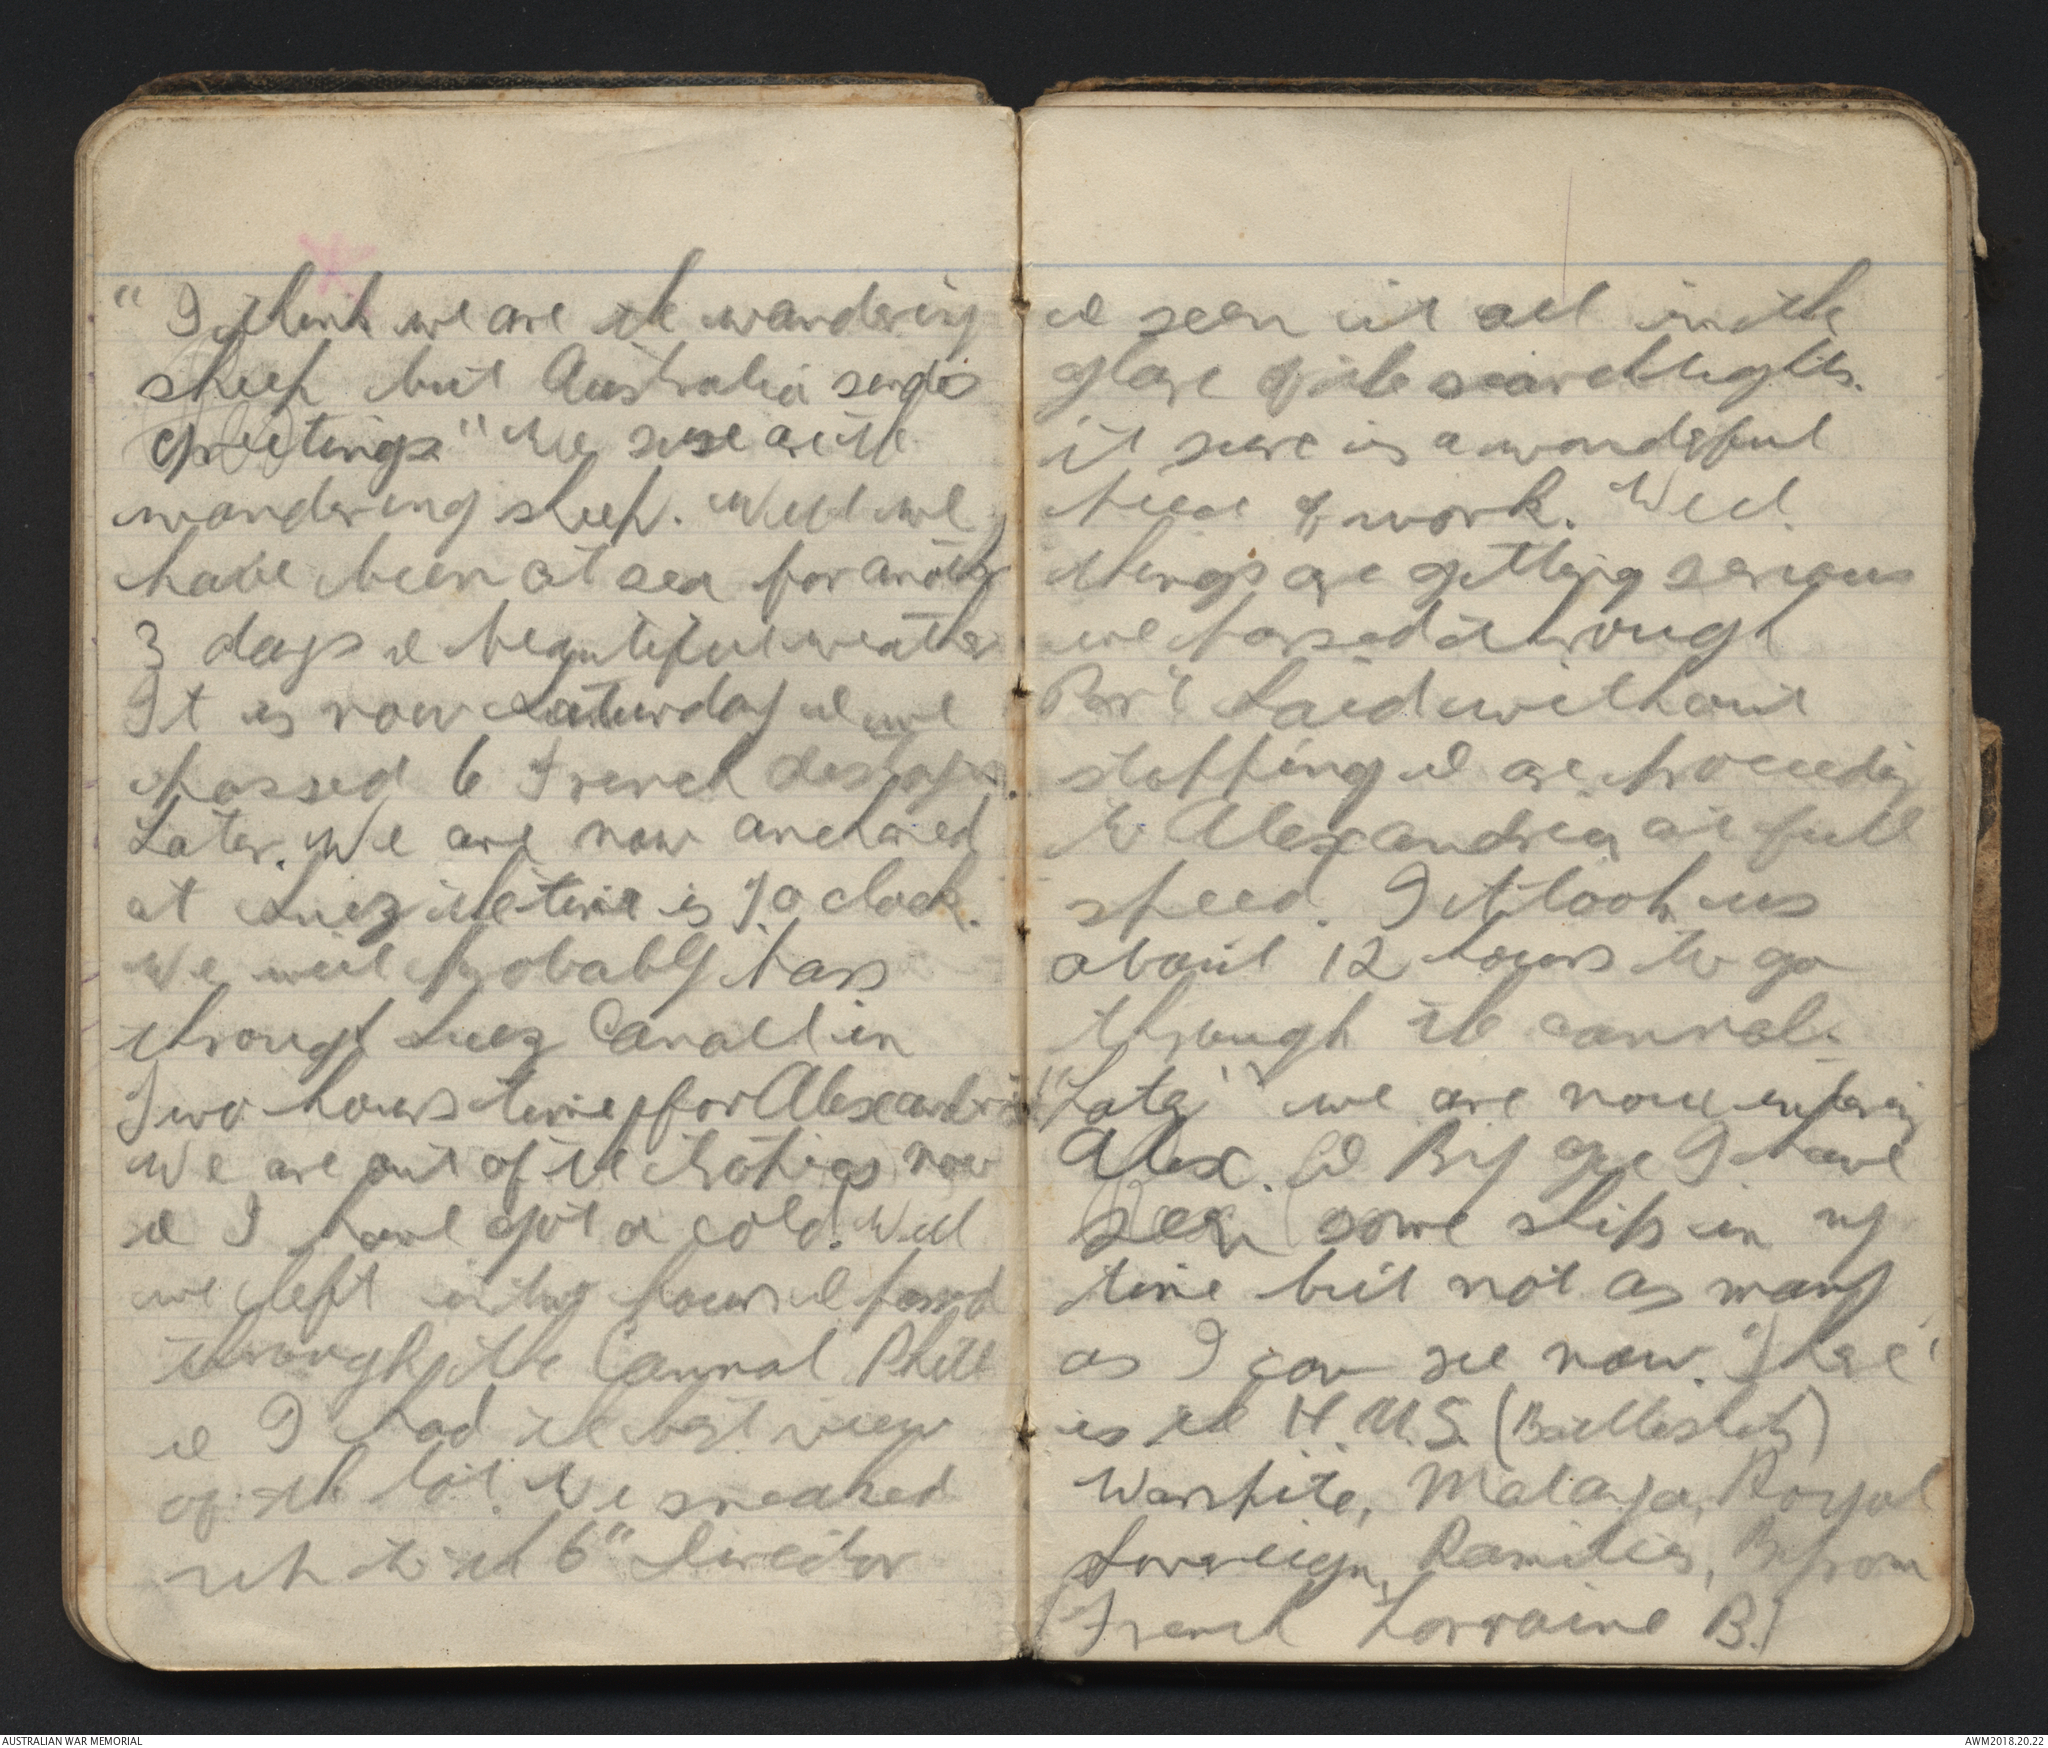 " I think we are the wandering
sheep but Australia sends
greetings" We sure are the
wandering sheep. Well we
have been at sea for another
3 days & beautiful weather
It is now Saturday & we
passed 6 French destroyers.
Later. We are now anchored
at Suez the time is 7 o clock.
We will probably pass
through Suez Canall in
Two hours time, for Alexandria
We are out of the tropics now
& I have got a cold. Well
we left in two hours & passed
through the Cannal Phill
& I had the best view
of the lot. We sneaked
up to the 6" Director
& seen it all in the
glare of the searchlights.
it sure is a wonderful
piece of work. Well
things are getting serious
we passed through
Port Said without
stopping & are proceeding
to Alexandria at full
speed. It took us
about 12 hours to go
through the cannal.
"Later" we are now entering
Alex. & By gee I have
seen some ships in my
time but not as many
as I can see now. There
is the H.M.S. (Battleships)
Warspite, Malaya, Royal
Sovereign, Ramilies,
(French Lorraine B.)
AUSTRALIAN WAR MEMORIAL
AWM2018.20.22